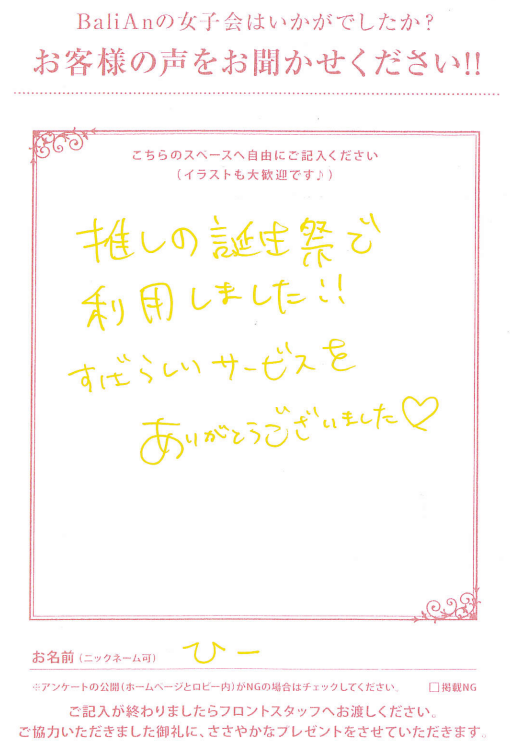 BaliAnの女子会はいかがでしたか？
お客様の声をお聞かせください!!
こちらのスペースへ自由にご記入ください
（イラストも大歓迎です♪）
推しの誕生祭で
利用しました!!
すばらしいサービスを
ありがとうございました♡
お名前（ニックネーム可） ひー
※アンケートの公開（ホームページとロビー内）がNGの場合はチェックしてください。 □掲載NG
ご記入が終わりましたらフロントスタッフへお渡しください。
ご協力いただきました御礼に、ささやかなプレゼントをさせていただきます。